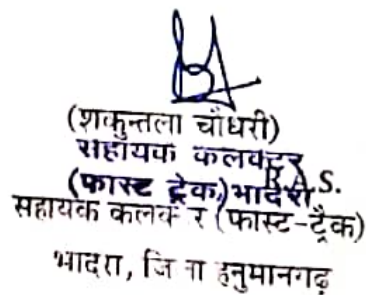 (शकुन्तला चौधरी)
सहायक कलक्टर
R.A.S.
(फास्ट ट्रेक) भादरा
सहायक कलक र (फास्ट-ट्रैक)
भादरा, जि ा हनुमानगढ़